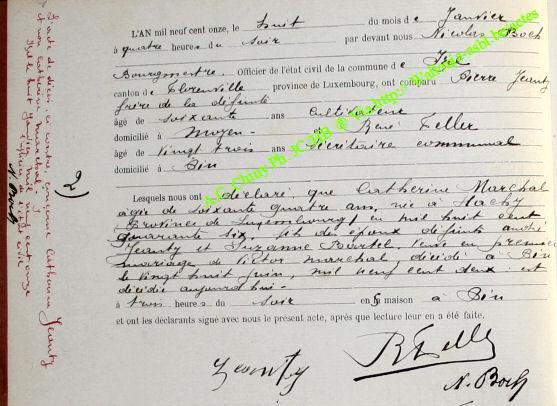 L'AN mil neuf cent onze, le huit du mois de Janvier
à quatre heures du soir par devant nous Nicolas Boch
Bourgmestre. Officier de l'état civil de la commune de Izel
canton de Florenville province de Luxembourg, ont comparu Pierre Jeanty
frère de la défunte
âgé de soixante ans cultivateur
domicilié à Moyen et René Feller
âgé de vingt trois ans secrétaire communal
domicilié à
Lesquels nous ont déclaré que Catherine Marchal
agée de soixante quatre ans, née à Hachy
Province de Luxembourg, en mil huit cent
quarante six, des époux défunts André
Jeanty et Suzanne Bartel. Veuve en premier
mariage de Victor Marchal, décédé à
le vingt huit juin, mil neuf cent deux : est
décédée aujourd'hui
à trois heures du soir en maison à
et ont les déclarants signé avec nous le présent acte, après que lecture leur en a été faite.
Jeanty
R Feller
N. Boch
2)
L'acte de décès ci contre, concerne Catherine Jeanty
et non Catherine Marchal
Izel huit Janvier mil neuf cent onze
l'officier de l'état civil
N. Boch
A.G. Chiny Ph. JCHR & via http://